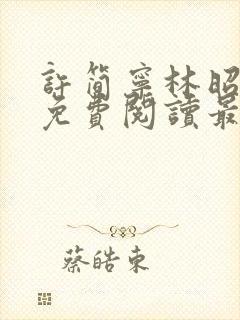 許簡寧林昭
免費閱讀最
蔡皓東